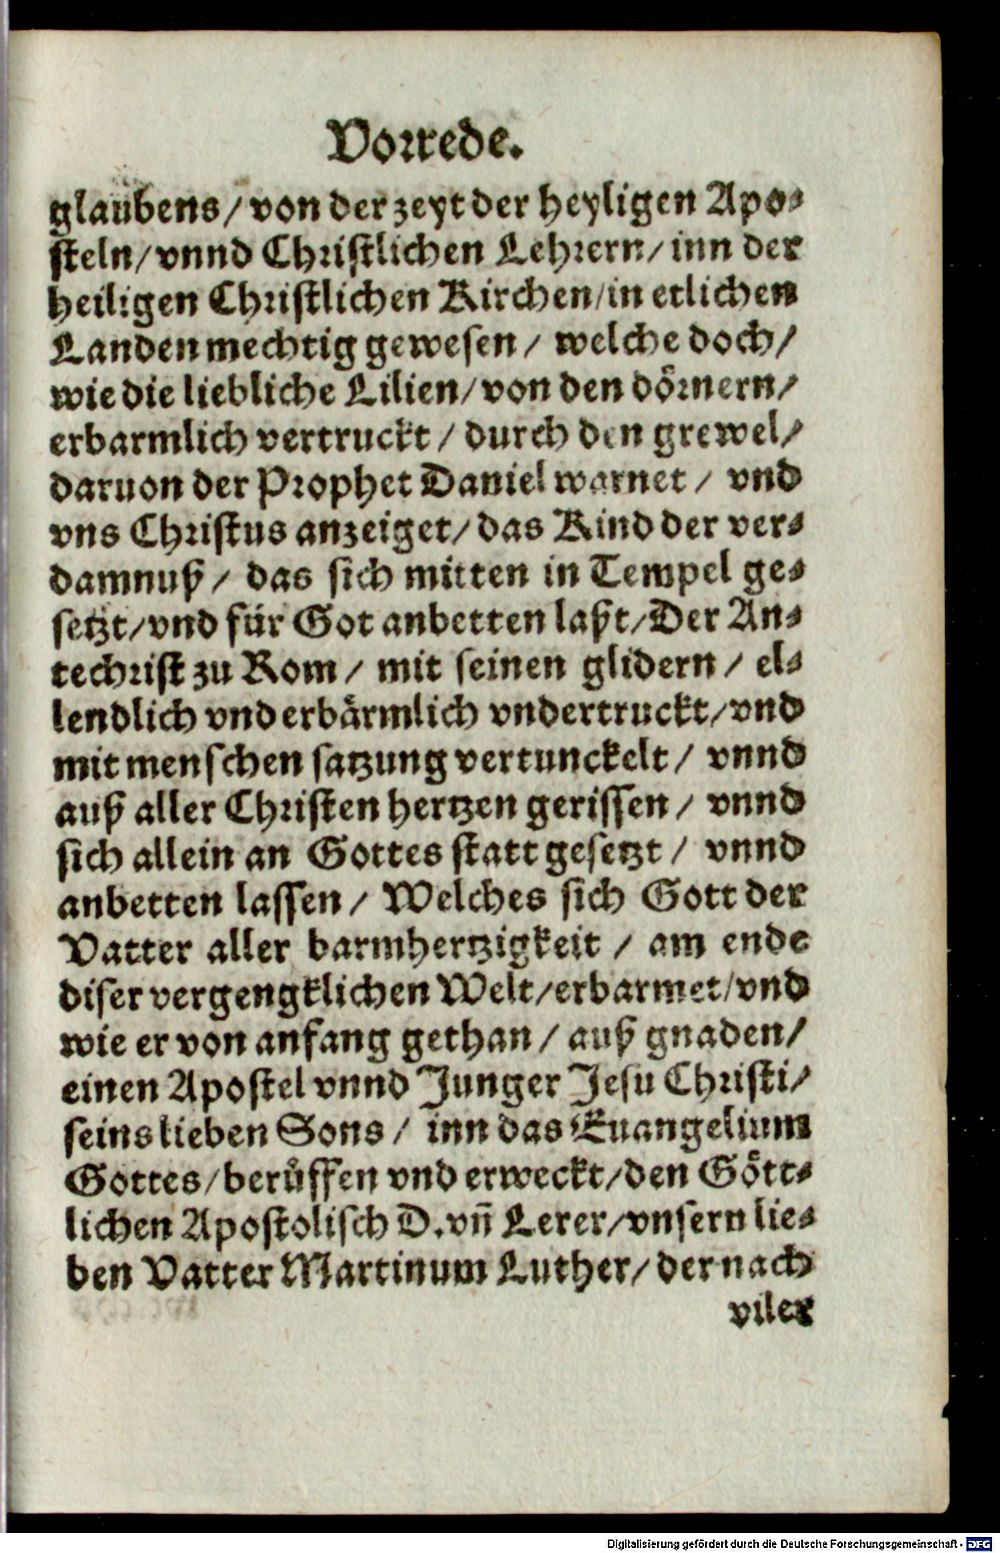 Vorrede.
glaubens/ von der zeyt der heyligen Apo-
steln/ vnnd Christlichen Lehrern/ inn der
heiligen Christlichen Kirchen/ in etlichen
Landen mechtig gewesen/ welche doch/
wie die liebliche Lilien/ von den dörnern/
erbarmlich vertruckt/ durch den grewel/
daruon der Prophet Daniel warnet/ vnd
vns Christus anzeiget/ das Kind der ver-
damnuß/ das sich mitten in Tempel ge-
setzt/ vnd für Got anbetten laßt/ Der An-
techrist zu Rom/ mit seinen glidern/ el-
lendlich vnd erbärmlich vndertruckt/ vnd
mit menschen satzung vertunckelt/ vnnd
auß aller Christen hertzen gerissen/ vnnd
sich allein an Gottes statt gesetzt/ vnnd
anbetten lassen/ Welches sich Gott der
Vatter aller barmhertzigkeit/ am ende
diser vergengklichen Welt/ erbarmet/ vnd
wie er von anfang gethan/ auß gnaden/
einen Apostel vnnd Junger Jesu Christi/
seins lieben Sons/ inn das Euangelium
Gottes/ berůffen vnd erweckt/ den Gött-
lichen Apostolisch D. vñ Lerer/ vnsern lie-
ben Vatter Martinum Luther/ der nach
viler
Digitalisierung gefördert durch die Deutsche Forschungsgemeinschaft - DFG